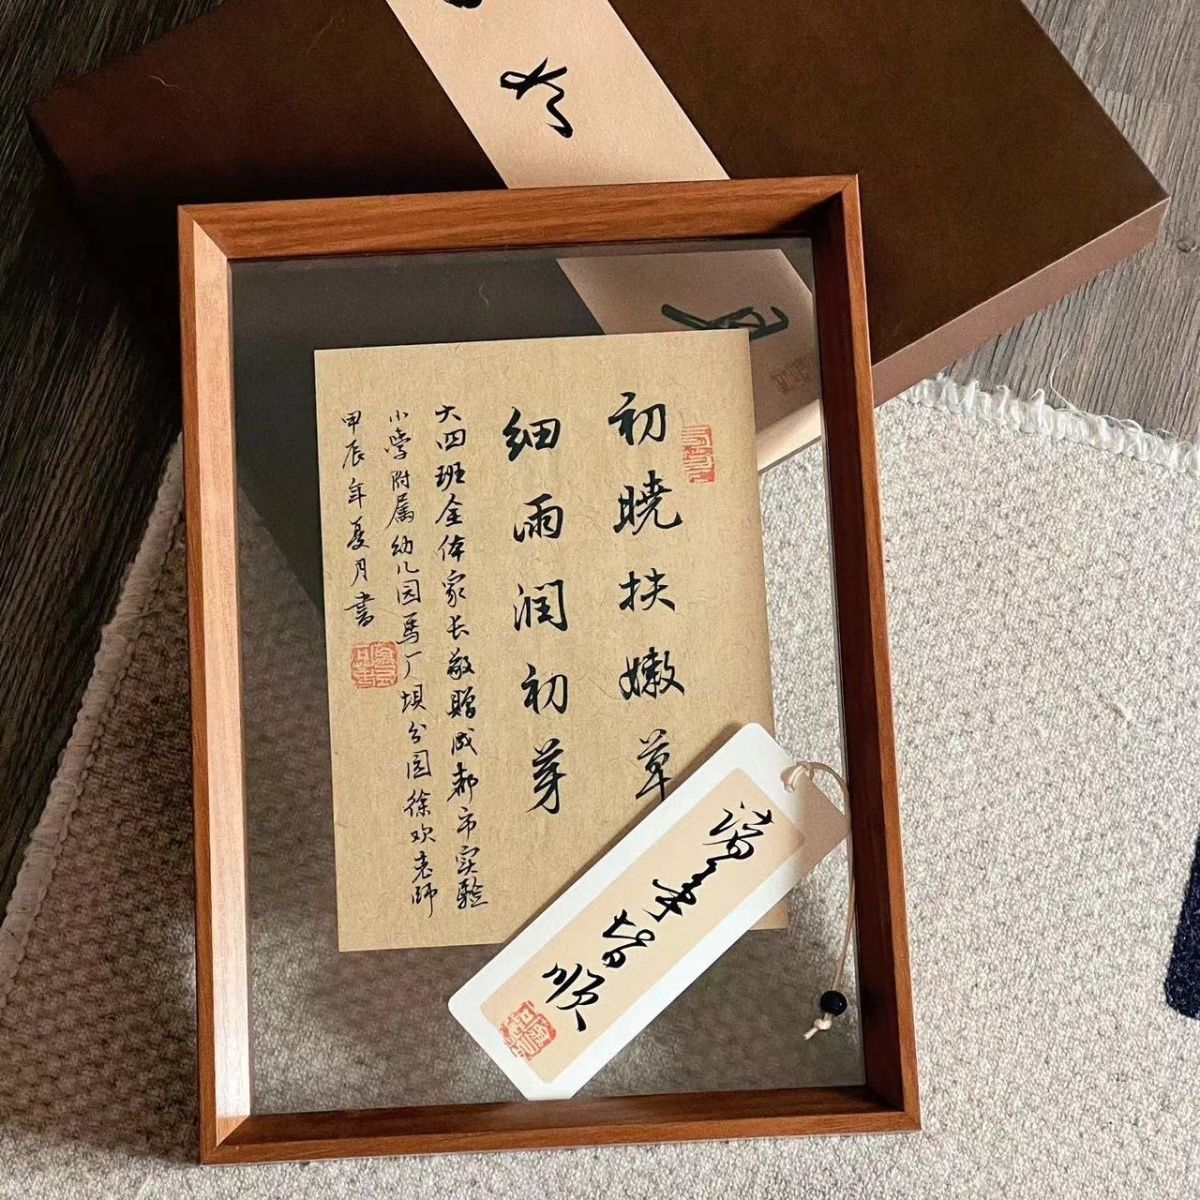 初曉扶嫩草
细雨润初芽
大四班全体家长敬赠成都市实验
小学附属幼儿园馬厂坝分园徐欢老师
甲辰年夏月書
诸事皆顺